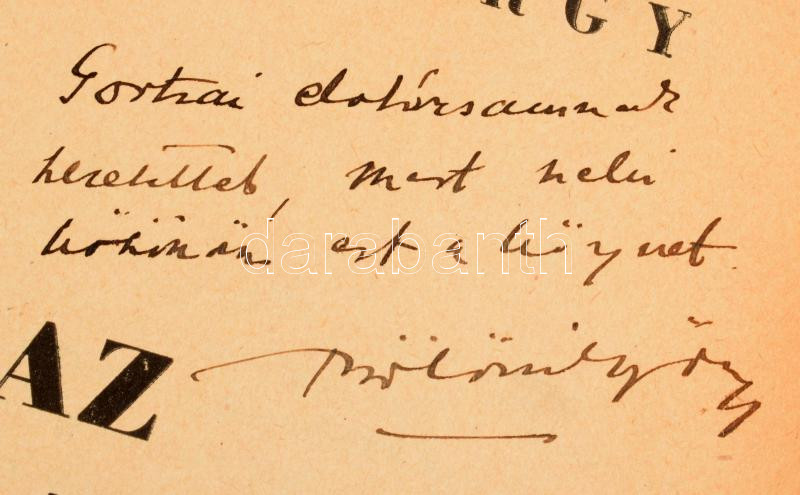 RGY
Gortvai doktorsamnak
szeretettel, mert neki
köszönöm ezt a könyvet
Bölöni György
AZ
darabanth